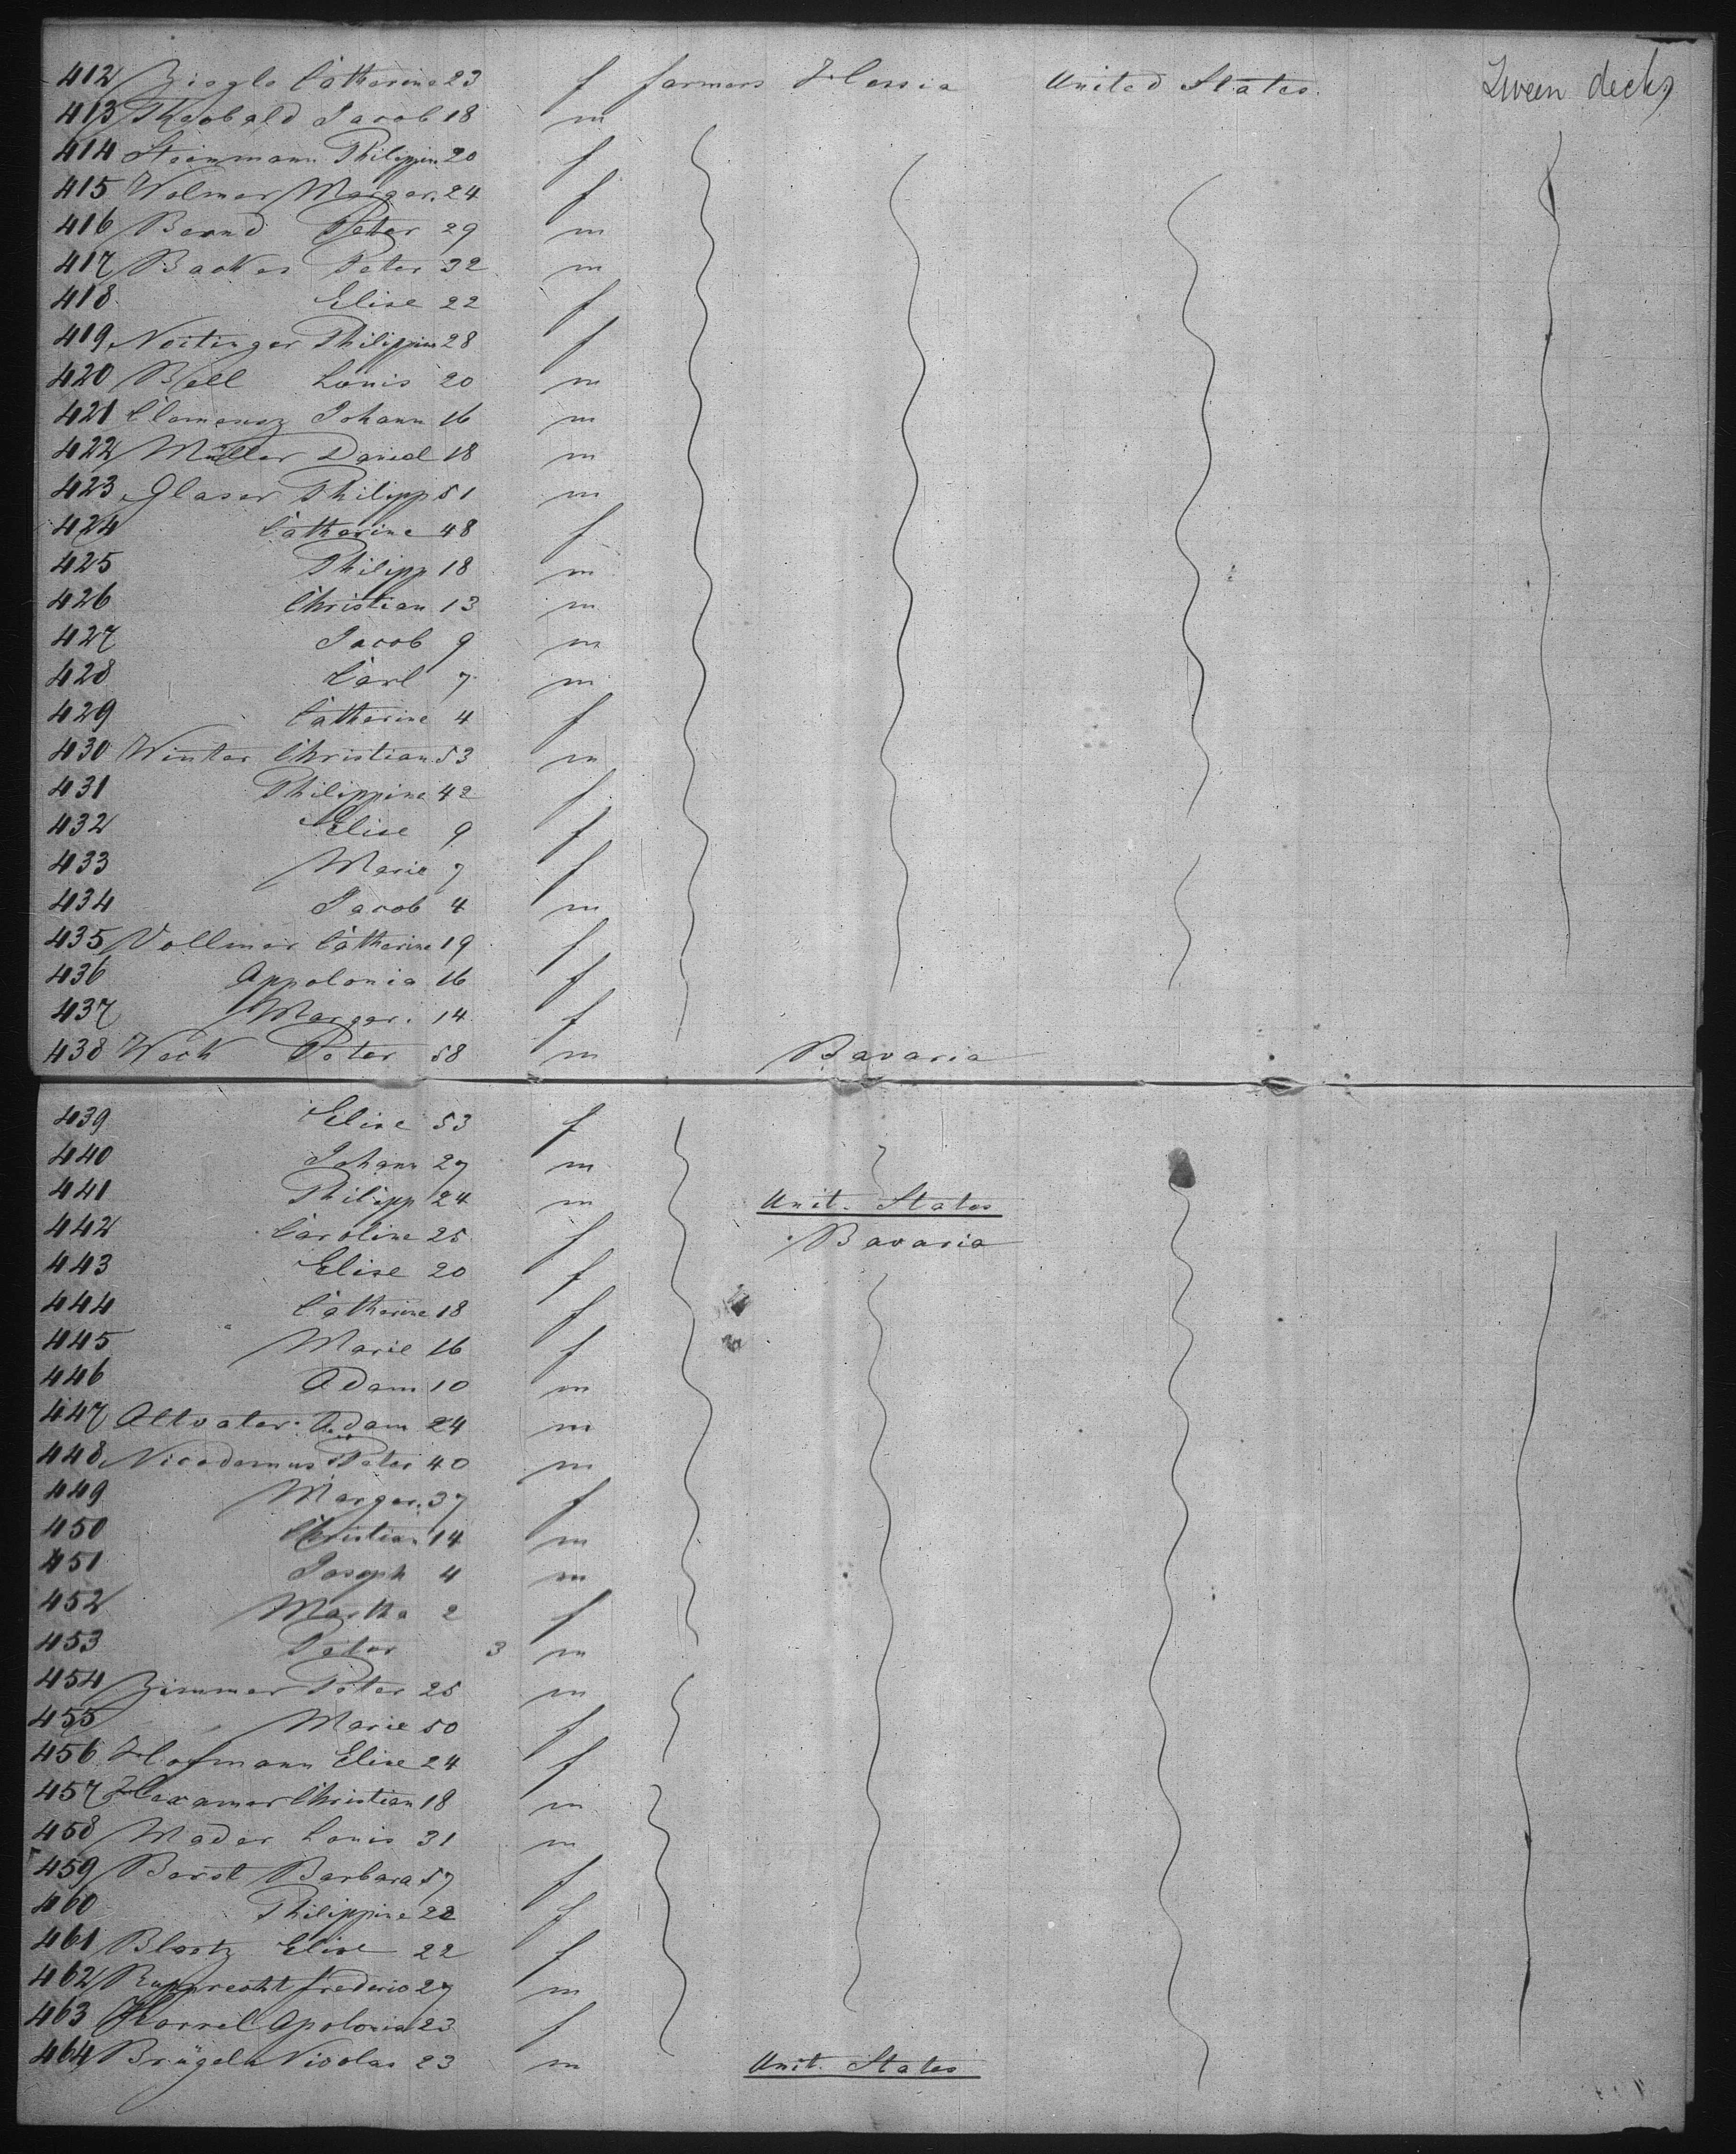 412 Ziegle Catharine 23 f farmers Hessia United States. Zween decks
413 Theobald Jacob 18 m
414 Steinmann Philippin 20 f
415 Wolmer Margar. 24 f
416 Bernd Peter 29 m
417 Backes Peter 32 m
418 Elise 22 f
419 Neitinger Philippine 28 f
420 Bell Louis 20 m
421 Clemensz Johann 16 m
422 Müller David 18 m
423 Glaser Philipp 51 m
424 Catharine 48 f
425 Philipp 18 m
426 Christian 13 m
427 Jacob 9 m
428 Carl 7 m
429 Catharine 4 f
430 Winter Christian 53 m
431 Philippine 42 f
432 Elise 9 f
433 Marie 7 f
434 Jacob 4 m
435 Vollmer Catharine 19 f
436 Appolonia 16 f
437 Margar. 14 f
438 Weck Peter 58 m Bavaria
439 Elise 53 f
440 Johann 27 m
441 Philipp 24 m Unit. States
442 Caroline 25 f Bavaria
443 Elise 20 f
444 Catharine 18 f
445 Marie 16 f
446 Adam 10 m
447 Altvater Adam 24 m
448 Nicodemus Peter 40 m
449 Margar. 37 f
450 Christian 14 m
451 Joseph 4 m
452 Martha 2 f
453 Peter 3 m
454 Zimmer Peter 25 m
455 Marie 50 f
456 Hofmann Elise 24 f
457 Hexamer Christian 18 m
458 Mader Louis 31 m
459 Berst Barbara 57 f
460 Philippine 22 f
461 Blootz Elise 22 f
462 Rupprecht Frederic 27 m
463 Harrel Apolonia 23 f
464 Brügel Nicolas 23 m Unit. States